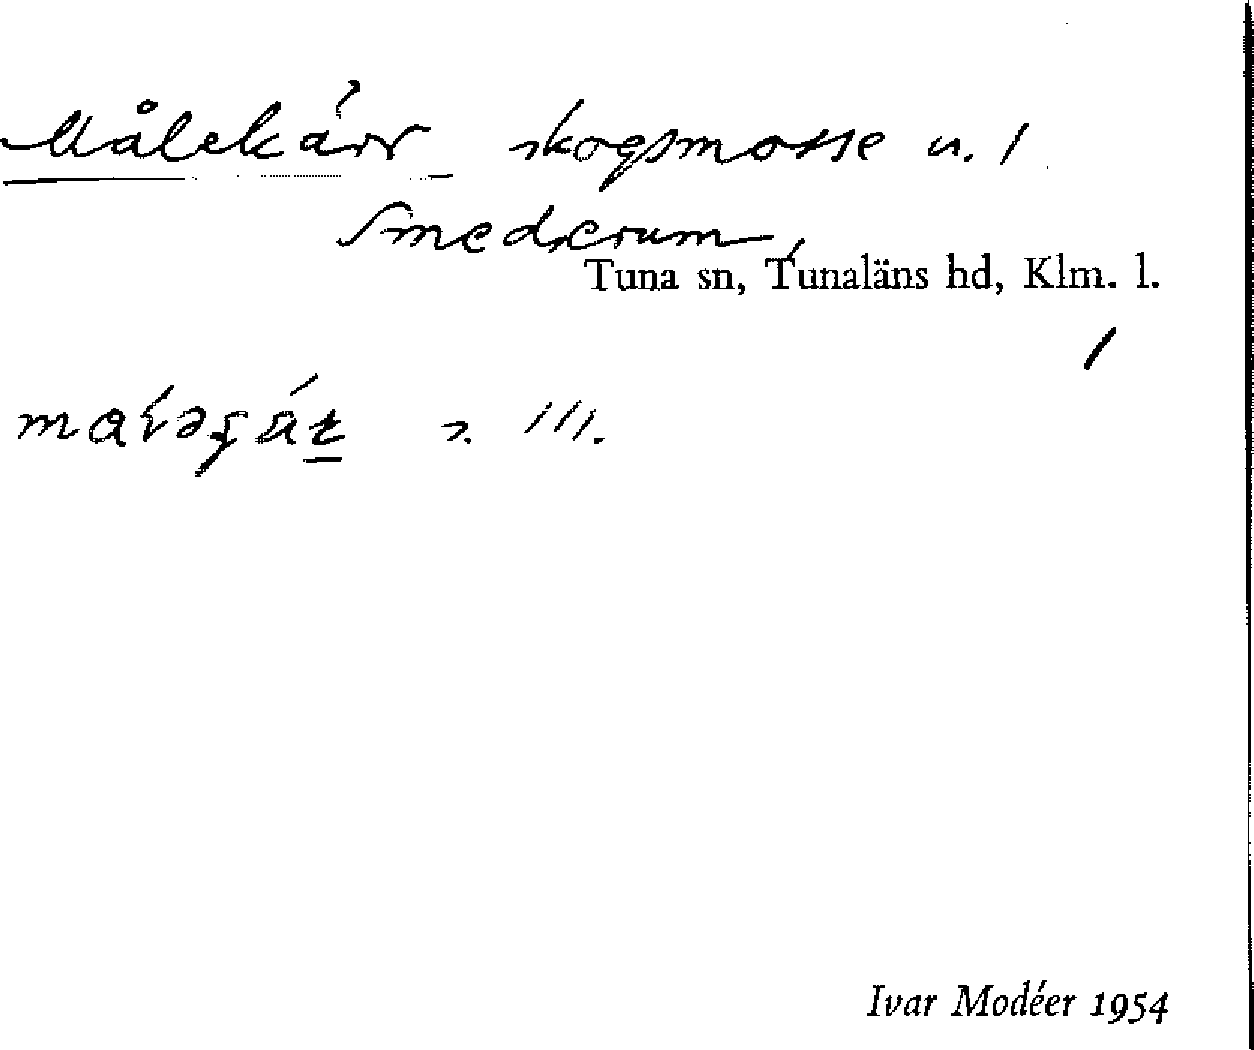 Målekärr skogsmosse u. /
Smederum,
Tuna sn, Tunaläns hd, Klm. l.
/
Ivar Modéer 1954